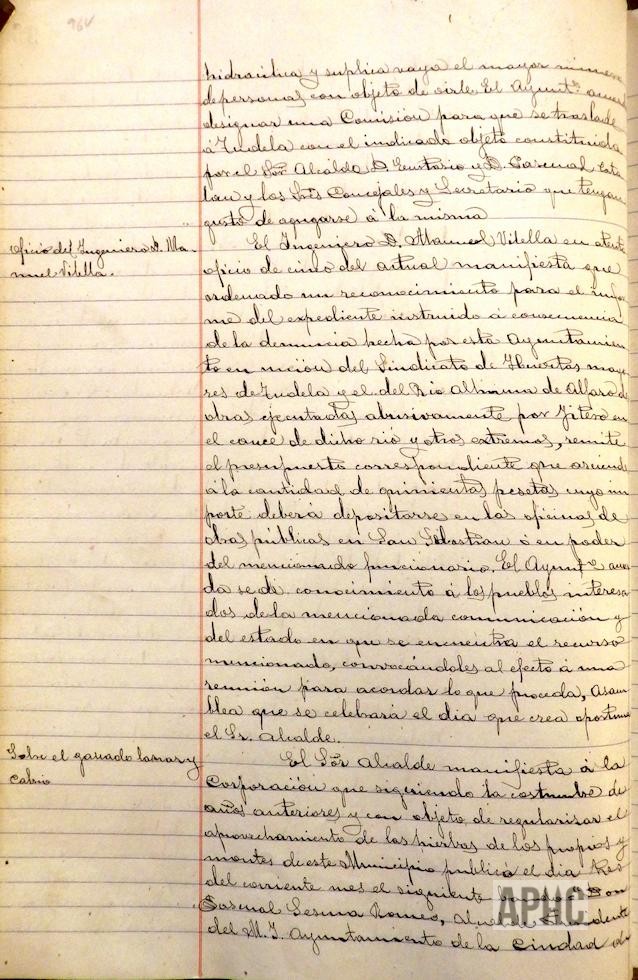 96v
hidraulica y suplica vaya el mayor numero
de personas con objeto de oirle. El Ayuntº acuerda
designar una Comisión para que se traslade
á Tudela con el indicado objeto constituida
por el Sor Alcalde D. Eustasio y D. Pascual Cata
lan y los Sres Concejales y Secretario que tengan
gusto de agregarse á la misma
Oficio del Ingeniero D. Ma-
nuel Vilella.
El Ingeniero D. Manuel Vilella en atento
oficio de cinco del actual manifiesta que
ordenado un reconocimiento para el infor
me del expediente instruido á consecuencia
de la denuncia hecha por este Ayuntamien
to en unión del Sindicato de Huertas mayo
res de Tudela y el del Rio Alhama de Alfaro de
obras ejecutadas abusivamente por Fitero en
el cauce de dicho rio y otros extremos, remite
el presupuesto correspondiente que asciende
á la cantidad de quinientas pesetas cuyo im
porte deberá depositarse en las oficinas de
obras públicas en San Sebastian ó en poder
del mencionado funcionario. El Ayuntº acuer
da se dé conocimiento á los pueblos interesa
dos de la mencionada comunicación y
del estado en que se encuentra el recurso
mencionado, convocándoles al efecto á una
reunión para acordar lo que proceda, Asam
blea que se celebrará el dia que crea oportuno
el Sr. Alcalde.
Sobre el ganado lanar y
cabrio
El Sor Alcalde manifiesta á la
Corporación que siguiendo la costumbre de
años anteriores y con objeto de regularizar el
aprovechamiento de las hierbas de los propios y
montes de este Municipio publicó el dia tres
del corriente mes el siguiente bando: "Don
Pascual Sesma Romeo, Alcalde Presidente
del M. I. Ayuntamiento de la Ciudad de
APMC